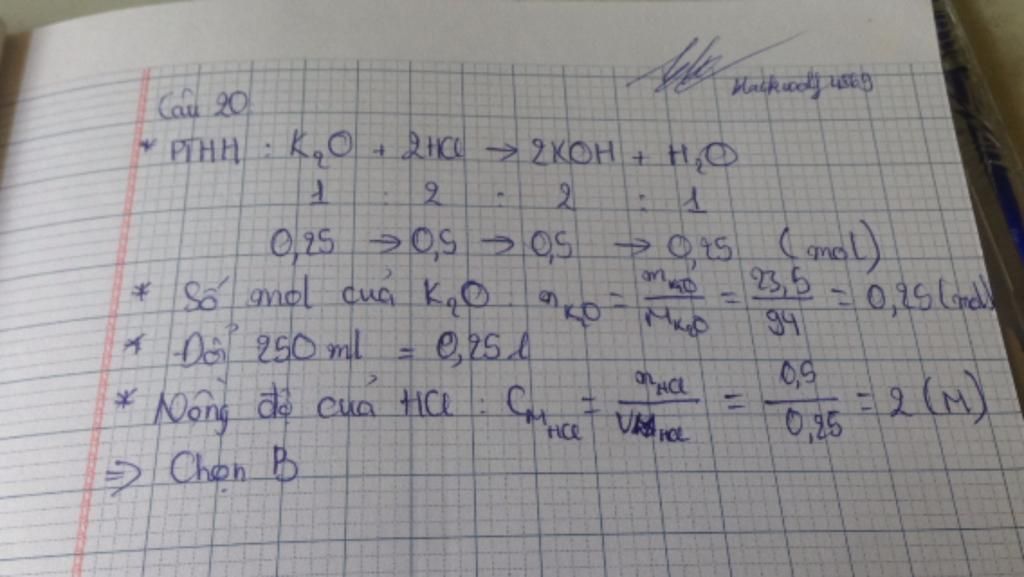 Câu 20
* PTHH : K₂O + 2HCl → 2KOH + H₂O
1 : 2 : 2 : 1
0,25 → 0,5 → 0,5 → 0,25 (mol)
* Số mol của K₂O : n K₂O = m K₂O / M K₂O = 23,5 / 94 = 0,25 (mol)
* Đổi 250 ml = 0,25 l
* Nồng độ của HCl : C M HCl = n HCl / V HCl = 0,5 / 0,25 = 2 (M)
⇒ Chọn B